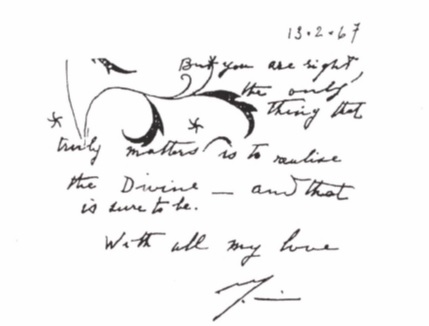 13.2.67
But you are right,
the only
thing that
truly matters is to realise
the Divine — and that
is sure to be.
With all my love